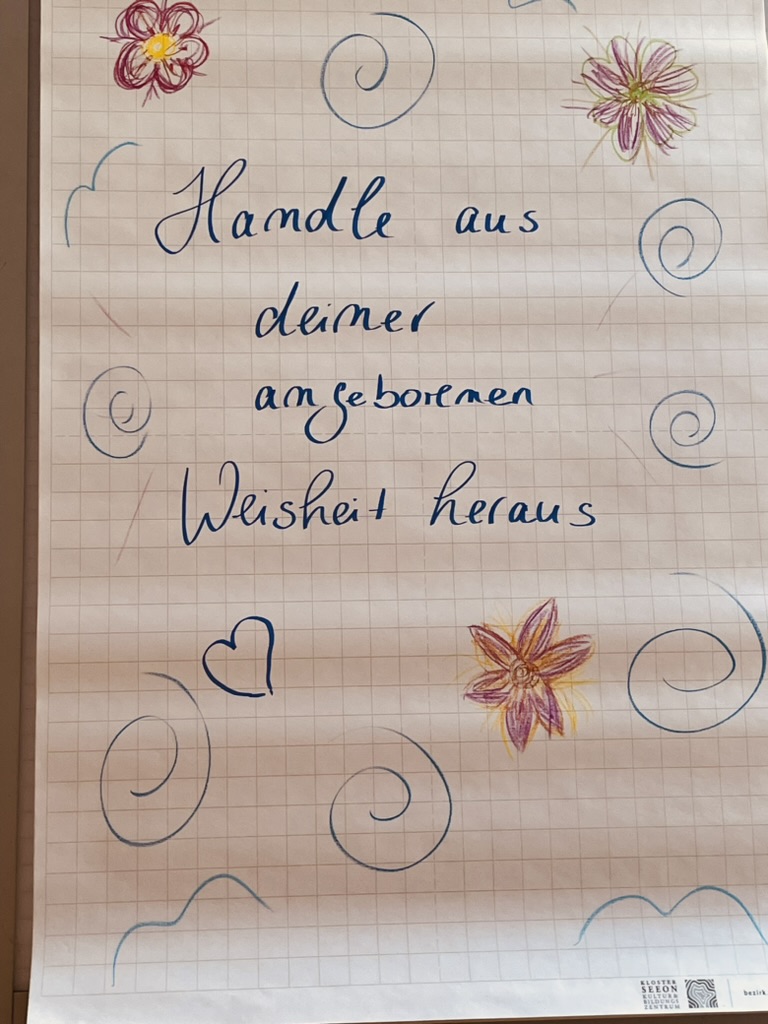 Handle aus
deiner
angeborenen
Weisheit heraus
KLOSTER
SEEON
KULTUR &
BILDUNGS
ZENTRUM
bezirk.